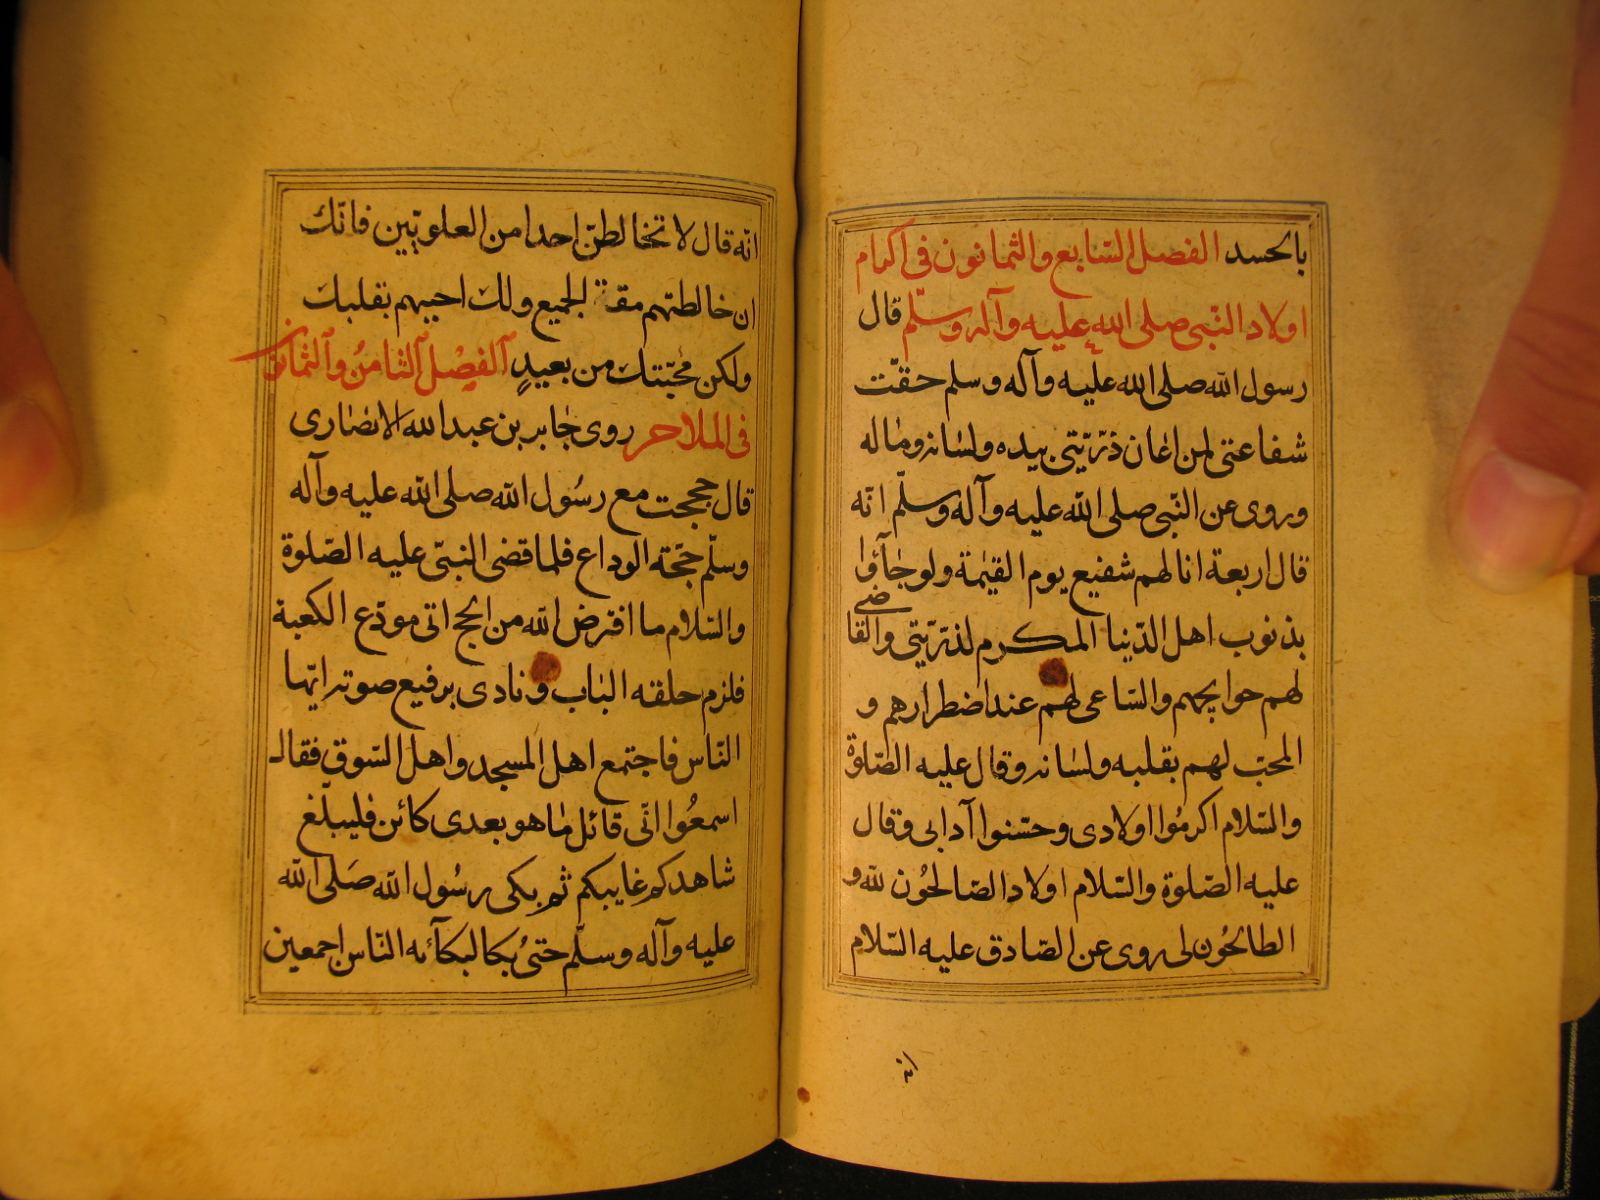 بالحسد الفصل السّابع والثمانون فی اکرام
اولاد النّبی صلی الله علیه وآله وسلّم قال
رسول الله صلی الله علیه وآله وسلم حقّت
شفاعتی لمن اعان ذرّیّتی بیده ولسانه وماله
وروی عن النّبی صلی الله علیه وآله وسلّم انّه
قال اربعة انا لهم شفیع یوم القیٰمة ولو جآؤا
بذنوب اهل الدّنیا المکرم لذرّیّتی والقاضی
لهم حوایجهم والسّاعی لهم عند اضطرارهم و
المحبّ لهم بقلبه ولسانه وقال علیه الصّلوة
والسّلام اکرمُوا اولادی وحسّنوا آدابی وقال
علیه الصّلوة والسّلام اولاد الصّالحُون لله و
الطالحُون لی روی عن الصّادق علیه السّلام
انّه
انّه قال لا تخالطنّ احدا من العلویّین فانّك
ان خالطتهم مقتّ الجمیع ولك احبیهم بقلبك
ولکن محبّتك من بعیدٍ الفصْل الثامنُ والثمانون
فی الملاحر روی جابر بن عبدالله الانصاری
قال حججت مع رسُول الله صلی الله علیه وآله
وسلّم حجّة الوداع فلما قضی النبّی علیه الصّلوة
والسّلام ما افترض الله من الحج اتی مودّع الکعبة
فلزم حلقه الباب ونادی برفیع صوته ایّها
النّاس فاجتمع اهل المسجد واهل السّوق فقال
اسمعُوا انّی قائل ما هو بعدی کائن فلیبلّغ
شاهدکم غایبکم ثم بکی رسُول الله صَلی الله
علیه وآله وسلّم حتیُ بکا لبکآئه النّاس اجمعین